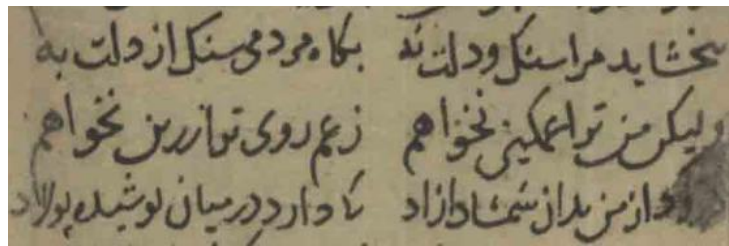 بخشاید مرا سنک و دلت نه بکاه مردمی سنک از دلت به
ولیکن من ترا غمکین نخواهم زغم روی تو را زرین نخواهم
از من بدان شمشاد ازاد کا دارد در میان پوشیده پولاد